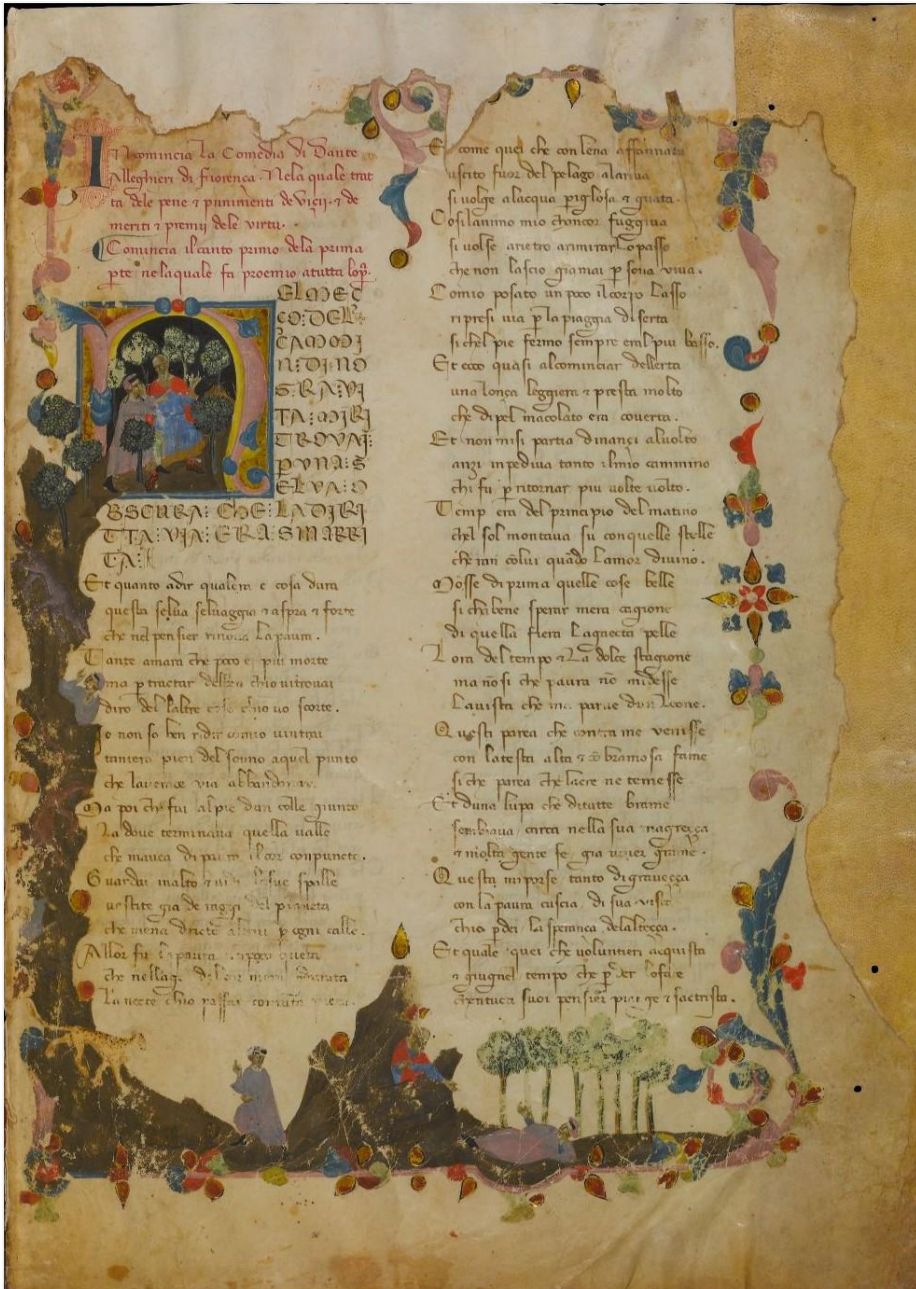 Incomincia la Comedia di Dante
Alleghieri di fiorença. Nela quale trat
ta dele pene & punimenti de viçii. & de
meriti & premii dele virtu.
Comincia il canto primo dela prima
pte nelaquale fa proemio atutta lop̃.
NELMEÇ
ÇO:DEL
CAMMI
N:DI:NO
STRA:VI
TA:MIRI
TROVAI:
P̱VNA:S
ELVA:O
BSCURA: CHE: LADIRI
TTA:VIA:ERA:SMARRI
TA:
Et quanto adir qualera e cosa dura
questa selva selvaggia & aspra & forte
che nel pensier rinova la paura.
Tante amara che poco e piu morte
ma p̱ tractar del ben chio vi trovai
diro del laltre cose chio vo scorte.
Io non so ben ridir comio vintrai
tantera pien del sonno aquel punto
che la verace via abbandonai.
Ma poi chi fui alpie dun colle giunto
La dove terminava quella valle
che mavea di paura il cor conpuncto.
Guardai inalto & vidi le sue spalle
vestite gia de raggi del pianeta
che mena dricto altrui p̱ ogni calle.
Allor fu la paura un poco queta
che nellago del cor mera durata
La nocte chio passai con tanta pieta.
Et come quei che con lena affannata
uscito fuor del pelago alariva
si volge alacqua p̱igliosa & guata.
Cosi lanimo mio chancor fuggiva
si volse arietro arimirar lo passo
che non lascio giamai p̱sona viva.
Comio posato un poco il corpo lasso
ripresi via p̱ la piaggia diserta
si chel pie fermo sempre eral piu basso.
Et ecco quasi alcominciar dellerta
una lonça leggiera & presta molto
che di pel macolato era coverta.
Et non mi si partia dinançi alvolto
anzi inpediva tanto il mio cammino
chi fu p̱ ritornar piu volte volto.
Temp era del principio del matino
chel sol montava su conquelle stelle
cheran cõlui quãdo lamor divino.
Mosse di prima quelle cose belle
si cha bene sperar mera cagione
di quella fiera lagaecta pelle
Lora del tempo & la dolce stagione
ma nõ si che paura nõ midesse
La vista che mi parve dun leone.
Questi parea che contra me venisse
con latesta alta & cõ bramosa fame
si che parea che laere ne temesse
Et duna lupa che ditutte brame
sembiava carca nella sua magreçça
& molta gente fe gia viver grame.
Questa miporse tanto di graveçça
con la paura cuscia di sua vista
chio p̱dei la sperança delalteçça.
Et quale quei che voluntieri acquista
& giugnel tempo che p̱der lo face
chentucti suoi pensier piange & sactrista.